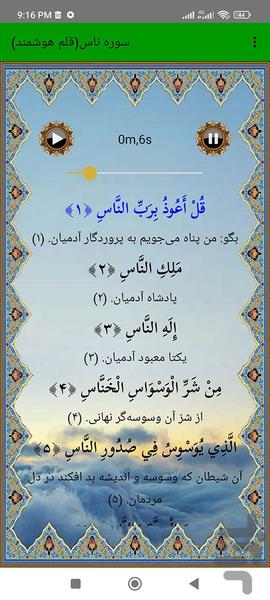 9:16 PM
سوره ناس(قلم هوشمند)
0m,6s
قُلْ أَعُوذُ بِرَبِّ النَّاسِ ﴿۱﴾
بگو: من پناه می‌جویم به پروردگار آدمیان. (۱)
مَلِكِ النَّاسِ ﴿۲﴾
پادشاه آدمیان. (۲)
إِلَهِ النَّاسِ ﴿۳﴾
یکتا معبود آدمیان. (۳)
مِنْ شَرِّ الْوَسْوَاسِ الْخَنَّاسِ ﴿۴﴾
از شرّ آن وسوسه‌گر نهانی. (۴)
الَّذِي يُوَسْوِسُ فِي صُدُورِ النَّاسِ ﴿۵﴾
آن شیطان که وسوسه و اندیشه بد افکند در دل
مردمان. (۵)